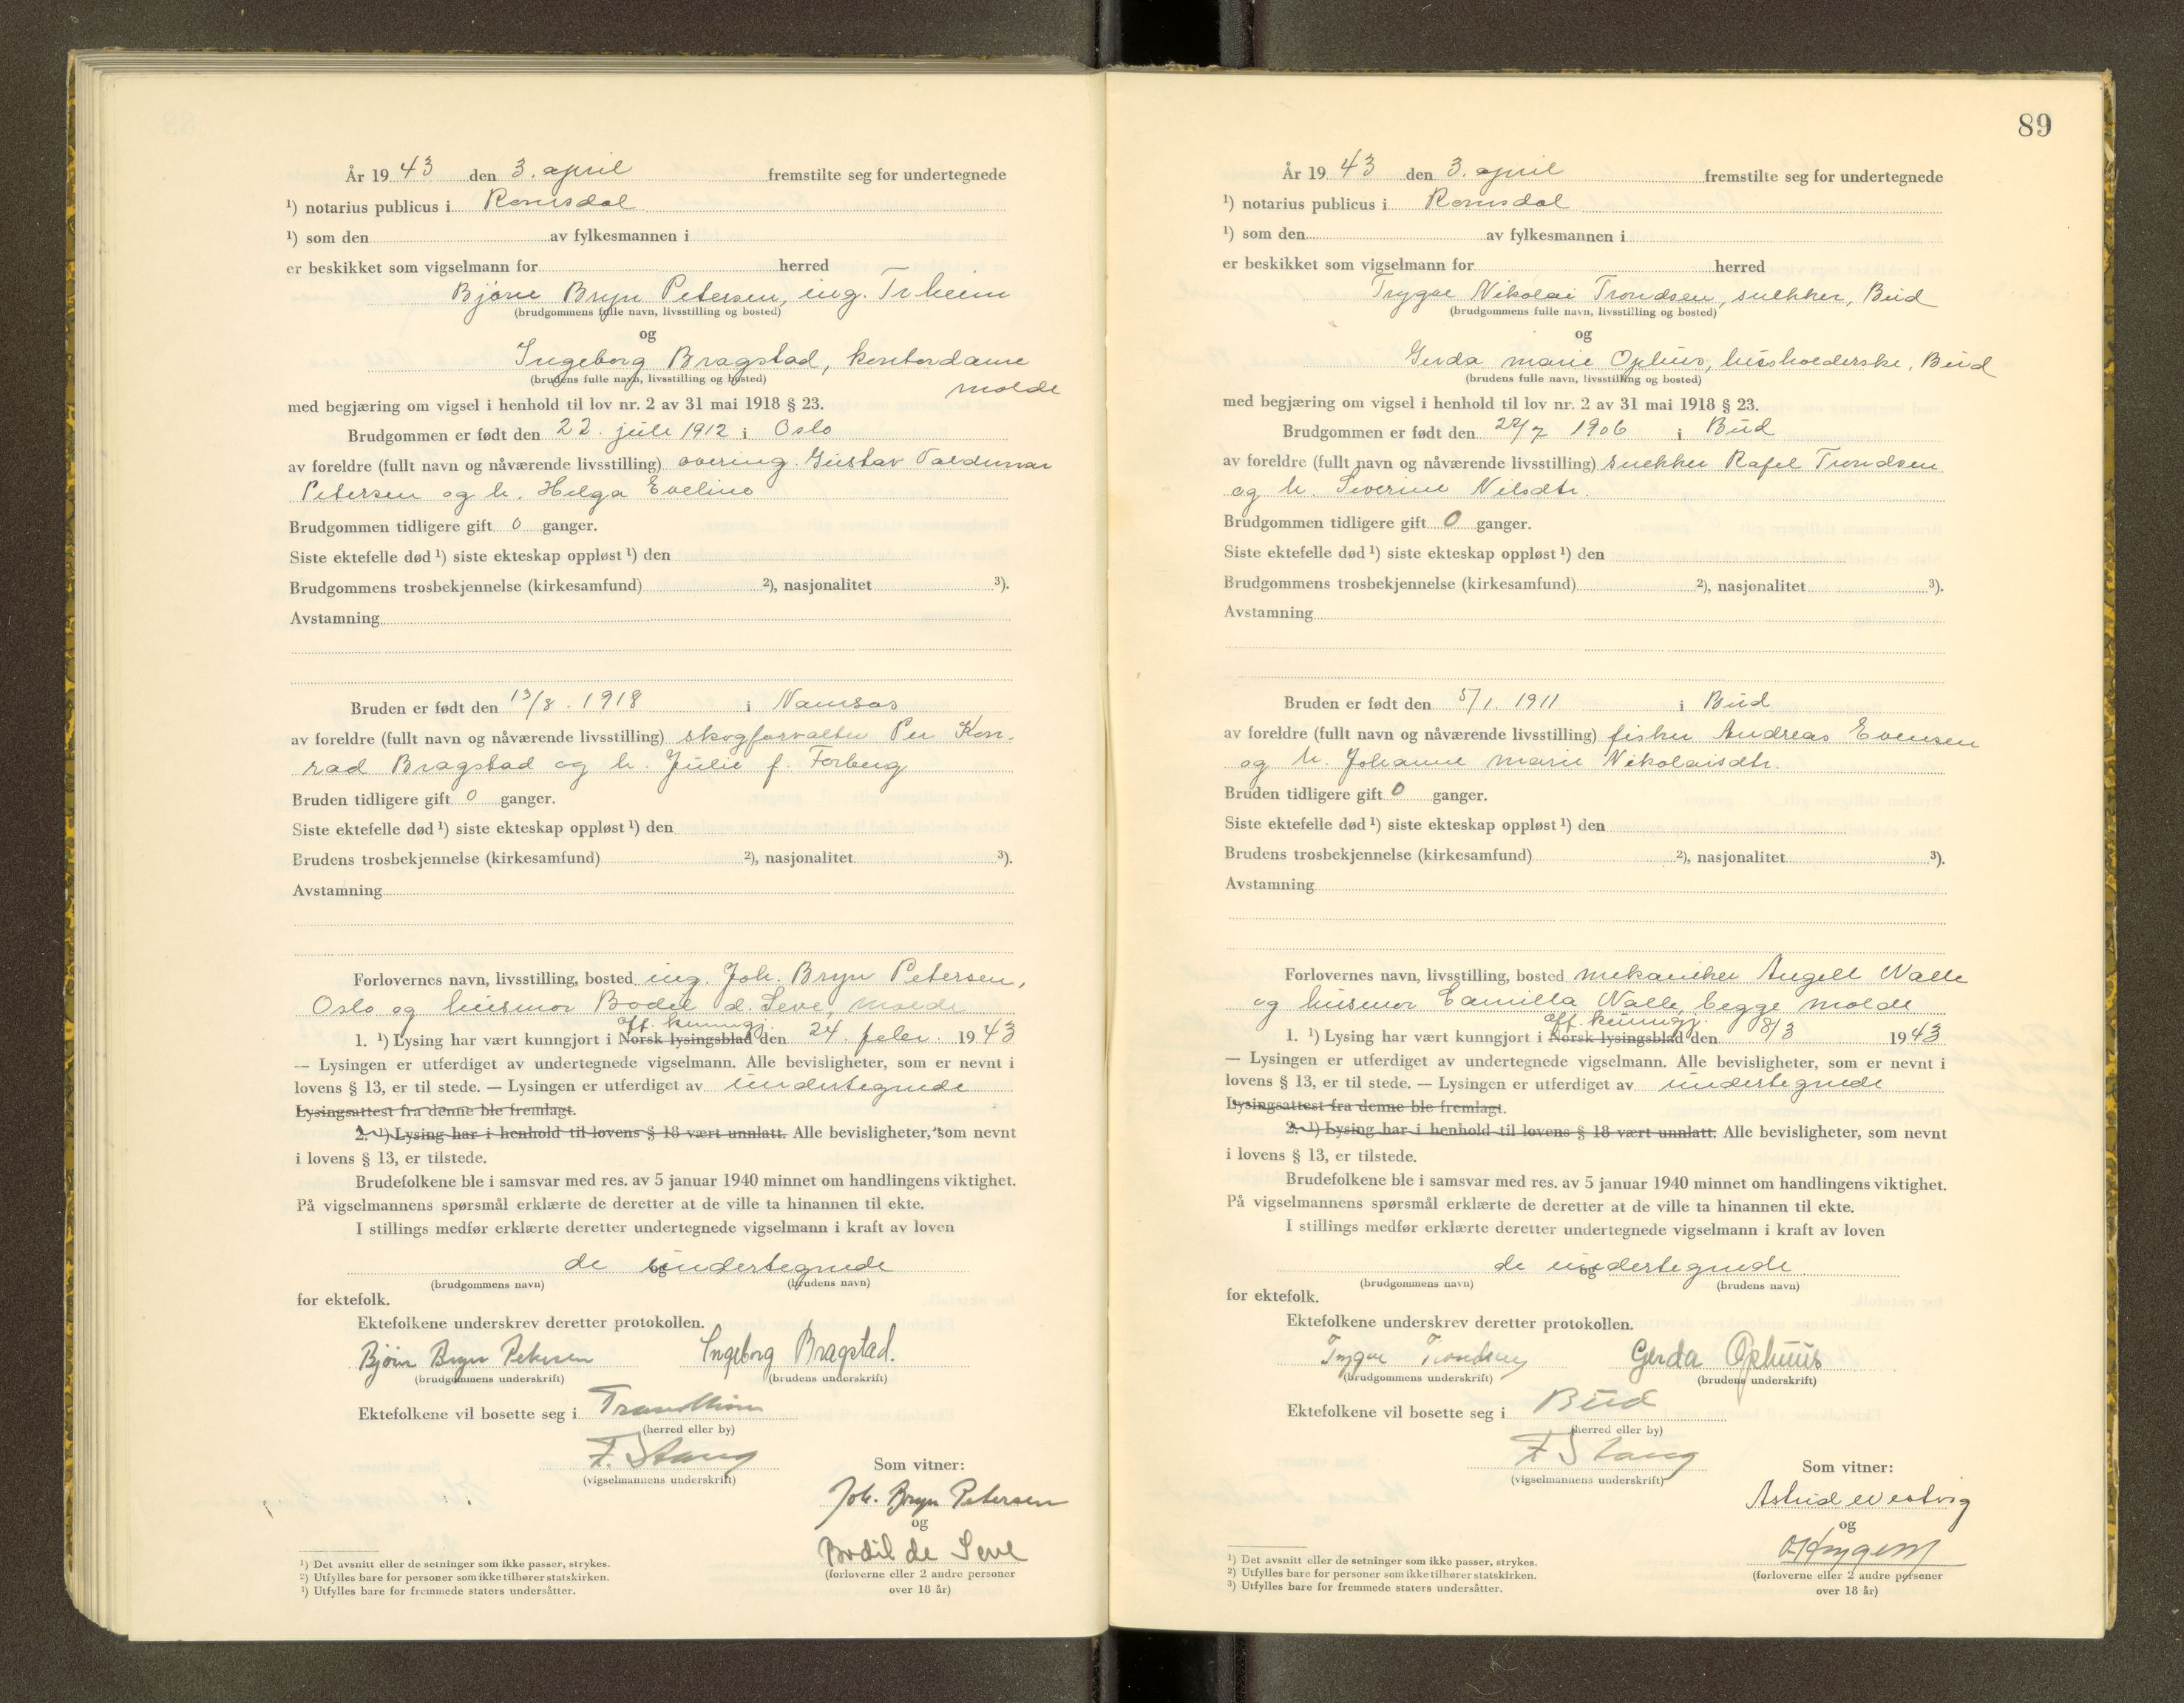 År 19 43 den 3. april fremstilte seg for undertegnede
¹) notarius publicus i Romsdal
¹) som den av fylkesmannen i
er beskikket som vigselmann for herred
Bjørn Bryn Petersen, ing. Tr.heim
(brudgommens fulle navn, livsstilling og bosted)
og
Ingeborg Bragstad, kontordame
(brudens fulle navn, livsstilling og bosted)
molde
med begjæring om vigsel i henhold til lov nr. 2 av 31 mai 1918 § 23.
Brudgommen er født den 22. juli 1912 i Oslo
av foreldre (fullt navn og nåværende livsstilling) overing. Gustav Valdemar
Petersen og h. Helga Eveline
Brudgommen tidligere gift 0 ganger.
Siste ektefelle død ¹) siste ekteskap oppløst ¹) den
Brudgommens trosbekjennelse (kirkesamfund) ²), nasjonalitet ³).
Avstamning
Bruden er født den 13/8. 1918 i Namsos
av foreldre (fullt navn og nåværende livsstilling) skogforvalter Per Kon-
rad Bragstad og h. Julie f. Forberg
Bruden tidligere gift 0 ganger.
Siste ektefelle død ¹) siste ekteskap oppløst ¹) den
Brudens trosbekjennelse (kirkesamfund) ²), nasjonalitet ³).
Avstamning
Forlovernes navn, livsstilling, bosted ing. Joh. Bryn Petersen,
Oslo og husmor Bodil d. Seve, molde
off. kunngj.
1. ¹) Lysing har vært kunngjort i Norsk lysingsblad den 24. febr 19 43
— Lysingen er utferdiget av undertegnede vigselmann. Alle bevisligheter, som er nevnt i
lovens § 13, er til stede. — Lysingen er utferdiget av undertegnede
Lysingsattest fra denne ble fremlagt.
2. ¹) Lysing har i henhold til lovens § 18 vært unnlatt. Alle bevisligheter, som nevnt
i lovens § 13, er tilstede.
Brudefolkene ble i samsvar med res. av 5 januar 1940 minnet om handlingens viktighet.
På vigselmannens spørsmål erklærte de deretter at de ville ta hinannen til ekte.
I stillings medfør erklærte deretter undertegnede vigselmann i kraft av loven
de undertegnede
og
(brudgommens navn) (brudens navn)
for ektefolk.
Ektefolkene underskrev deretter protokollen.
Bjørn Bryn Petersen Ingeborg Bragstad.
(brudgommens underskrift) (brudens underskrift)
Ektefolkene vil bosette seg i Trondheim
(herred eller by)
F. Stang
(vigselmannens underskrift)
Som vitner:
Joh. Bryn Petersen
og
Bodil de Seve
(forloverne eller 2 andre personer
over 18 år)
¹) Det avsnitt eller de setninger som ikke passer, strykes.
²) Utfylles bare for personer som ikke tilhører statskirken.
³) Utfylles bare for fremmede staters undersåtter.
89
År 19 43 den 3. april fremstilte seg for undertegnede
¹) notarius publicus i Romsdal
¹) som den av fylkesmannen i
er beskikket som vigselmann for herred
Trygve Nikolai Trondsen, snekker, Bud
(brudgommens fulle navn, livsstilling og bosted)
og
Gerda marie Ophus, husholderske, Bud
(brudens fulle navn, livsstilling og bosted)
med begjæring om vigsel i henhold til lov nr. 2 av 31 mai 1918 § 23.
Brudgommen er født den /7 1906 i Bud
av foreldre (fullt navn og nåværende livsstilling) snekker Rafel Trondsen
og h. Severine Nilsdtr.
Brudgommen tidligere gift 0 ganger.
Siste ektefelle død ¹) siste ekteskap oppløst ¹) den
Brudgommens trosbekjennelse (kirkesamfund) ²), nasjonalitet ³).
Avstamning
Bruden er født den 5/1. 1911 i Bud
av foreldre (fullt navn og nåværende livsstilling) fisker Andreas Evensen
og h. Johanne marie Nikolaisdtr.
Bruden tidligere gift 0 ganger.
Siste ektefelle død ¹) siste ekteskap oppløst ¹) den
Brudens trosbekjennelse (kirkesamfund) ²), nasjonalitet ³).
Avstamning
Forlovernes navn, livsstilling, bosted mekaniker Angell Nalle
og husmor Camilla Nalle, begge molde
off. kunngj.
1. ¹) Lysing har vært kunngjort i Norsk lysingsblad den 8/3 19 43
— Lysingen er utferdiget av undertegnede vigselmann. Alle bevisligheter, som er nevnt i
lovens § 13, er til stede. — Lysingen er utferdiget av undertegnede
Lysingsattest fra denne ble fremlagt.
2. ¹) Lysing har i henhold til lovens § 18 vært unnlatt. Alle bevisligheter, som nevnt
i lovens § 13, er tilstede.
Brudefolkene ble i samsvar med res. av 5 januar 1940 minnet om handlingens viktighet.
På vigselmannens spørsmål erklærte de deretter at de ville ta hinannen til ekte.
I stillings medfør erklærte deretter undertegnede vigselmann i kraft av loven
de undertegnede
og
(brudgommens navn) (brudens navn)
for ektefolk.
Ektefolkene underskrev deretter protokollen.
Trygve Trondsen Gerda Ophuus
(brudgommens underskrift) (brudens underskrift)
Ektefolkene vil bosette seg i Bud
(herred eller by)
F Stang
(vigselmannens underskrift)
Som vitner:
Astrid
og
(forloverne eller 2 andre personer
over 18 år)
¹) Det avsnitt eller de setninger som ikke passer, strykes.
²) Utfylles bare for personer som ikke tilhører statskirken.
³) Utfylles bare for fremmede staters undersåtter.